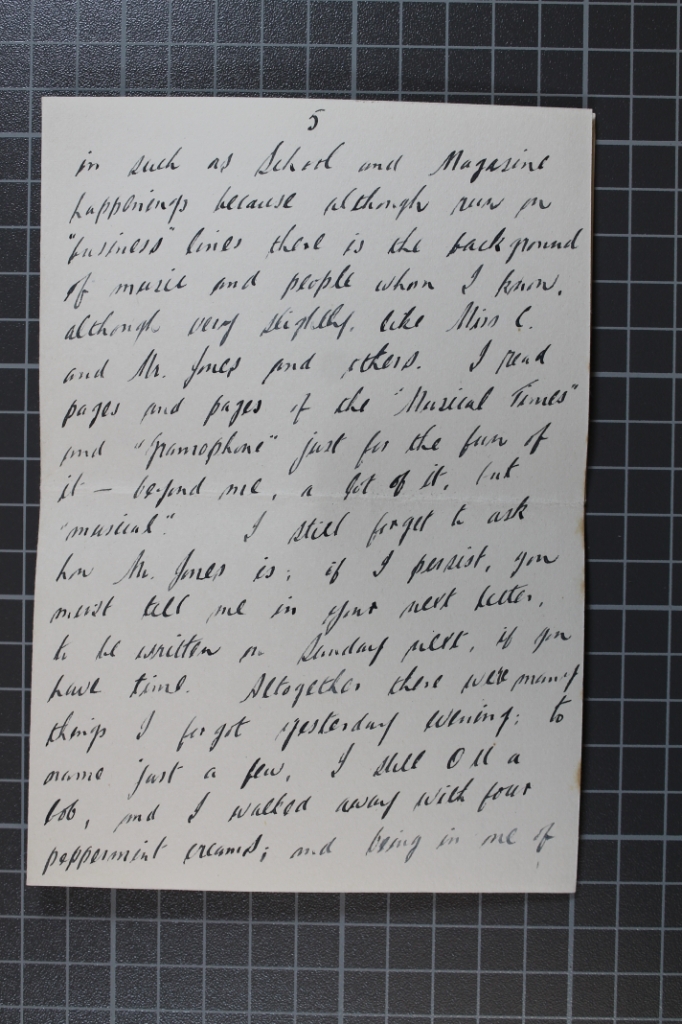 5
in such as School and Magazine
happenings because although run on
"business" lines there is the background
of music and people whom I know,
although very slightly, like Miss C.
and Mr. Jones and others. I read
pages and pages of the "Musical Times"
and "Gramophone" just for the fun of
it — beyond me, a lot of it, but
"musical". I still forget to ask
how Mr. Jones is; if I persist, you
must tell me in your next letter,
to be written on Sunday next, if you
have time. Altogether there were many
things I forgot yesterday evening; to
name just a few, I still O U a
bob, and I walked away with four
peppermint creams; and being in one of